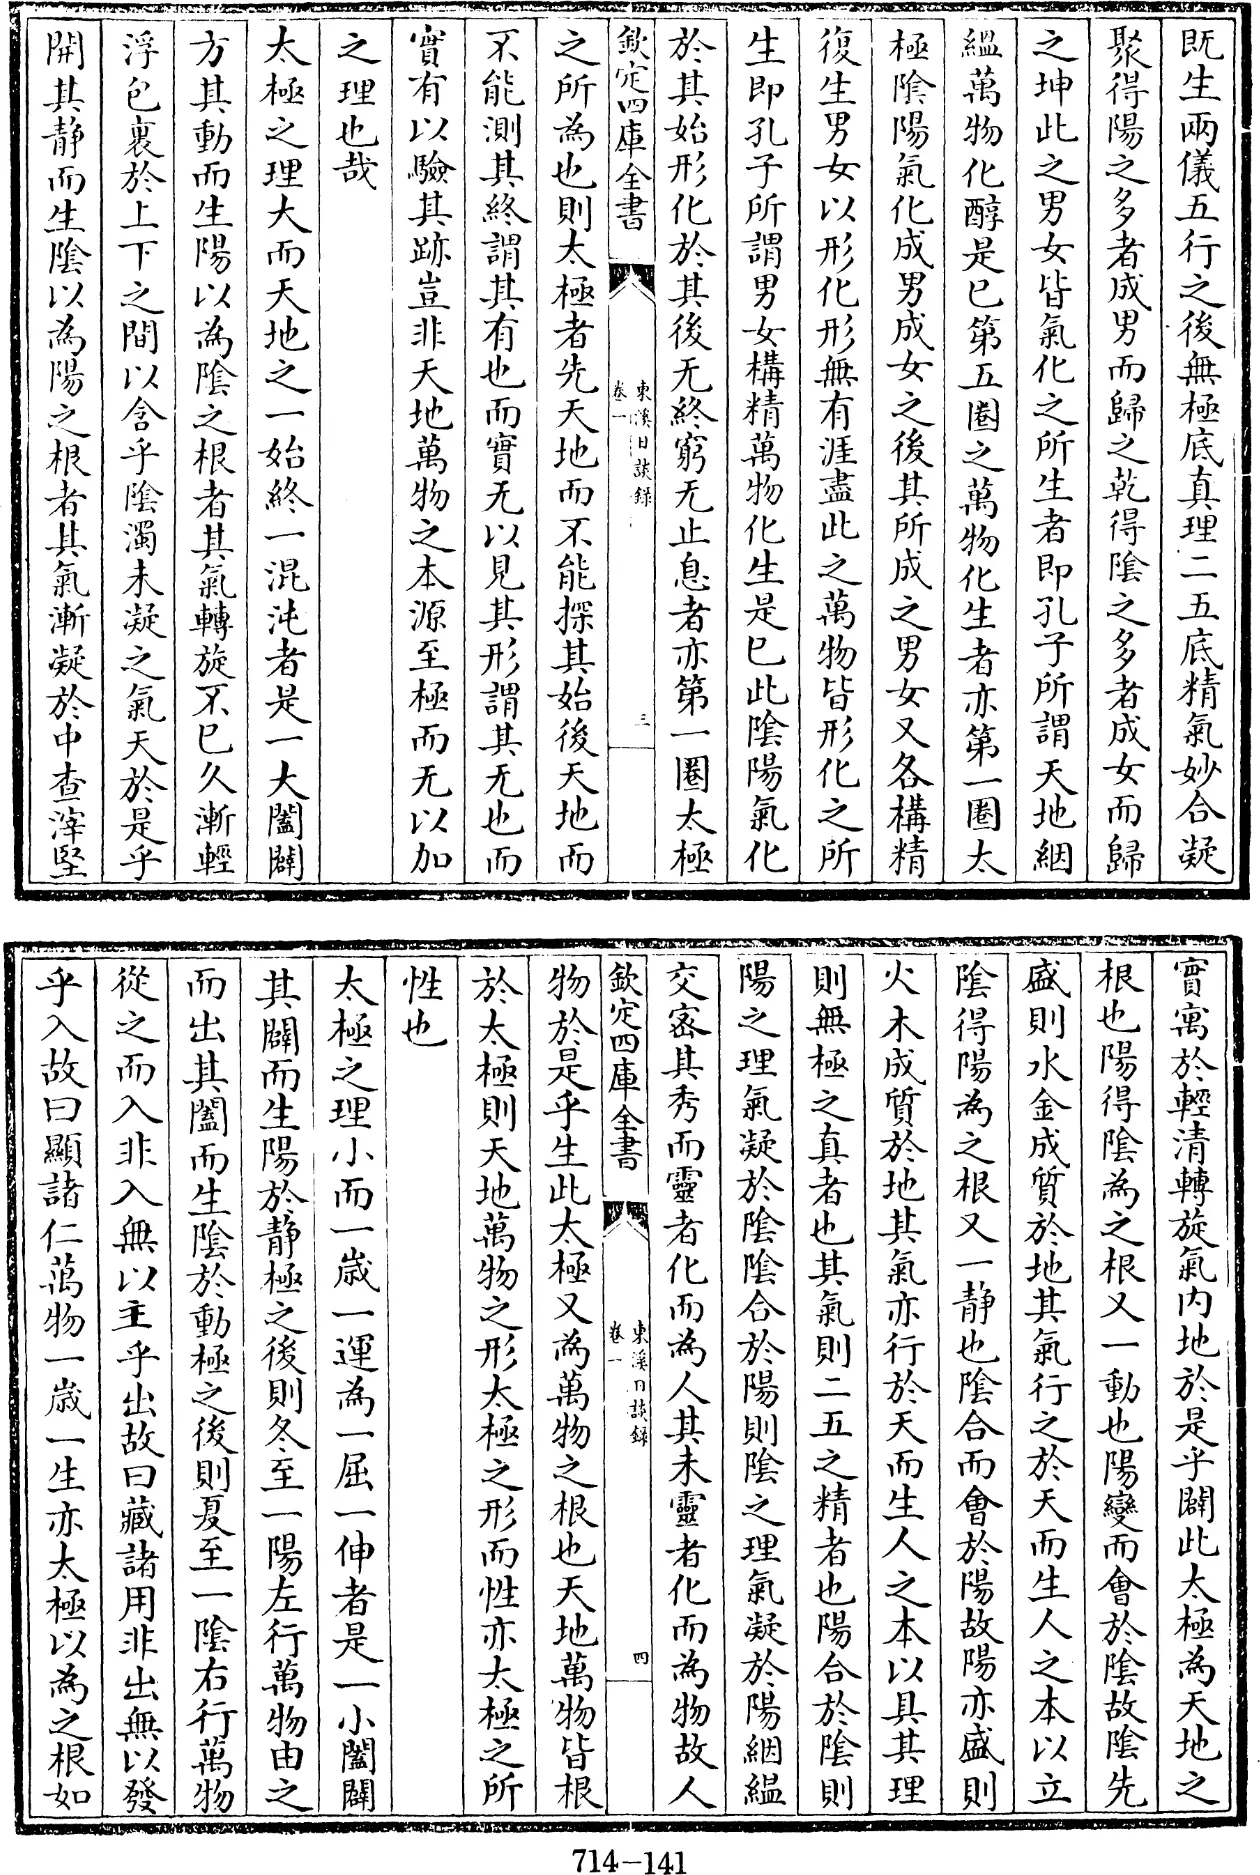 既生兩儀五行之後無極底真理二五底精氣妙合凝
聚得陽之多者成男而歸之乾得陰之多者成女而歸
之坤此之男女皆氣化之所生者即孔子所謂天地絪
縕萬物化醇是已第五圈之萬物化生者亦第一圈太
極陰陽氣化成男成女之後其所成之男女又各構精
復生男女以形化形無有涯盡此之萬物皆形化之所
生即孔子所謂男女構精萬物化生是已此陰陽氣化
於其始形化於其後无終窮无止息者亦第一圈太極
欽定四庫全書
東溪日談錄
卷一
三
之所為也則太極者先天地而不能探其始後天地而
不能測其終謂其有也而實无以見其形謂其无也而
實有以驗其跡豈非天地萬物之本源至極而无以加
之理也哉
太極之理大而天地之一始終一混沌者是一大闔闢
方其動而生陽以為陰之根者其氣轉旋不已久漸輕
浮包裏於上下之間以含乎陰濁未凝之氣天於是乎
開其静而生陰以為陽之根者其氣漸凝於中查滓堅
實寓於輕清轉旋氣内地於是乎闢此太極為天地之
根也陽得陰為之根又一動也陽變而會於陰故陰先
盛則水金成質於地其氣行之於天而生人之本以立
陰得陽為之根又一静也陰合而會於陽故陽亦盛則
火木成質於地其氣亦行於天而生人之本以具其理
則無極之真者也其氣則二五之精者也陽合於陰則
陽之理氣凝於陰陰合於陽則陰之理氣凝於陽絪縕
交密其秀而靈者化而為人其未靈者化而為物故人
欽定四庫全書
東溪日談錄
卷一
四
物於是乎生此太極又為萬物之根也天地萬物皆根
於太極則天地萬物之形太極之形而性亦太極之所
性也
太極之理小而一歲一運為一屈一伸者是一小闔闢
其闢而生陽於静極之後則冬至一陽左行萬物由之
而出其闔而生陰於動極之後則夏至一陰右行萬物
從之而入非入無以主乎出故曰藏諸用非出無以發
乎入故曰顯諸仁萬物一歲一生亦太極以為之根如
714-141